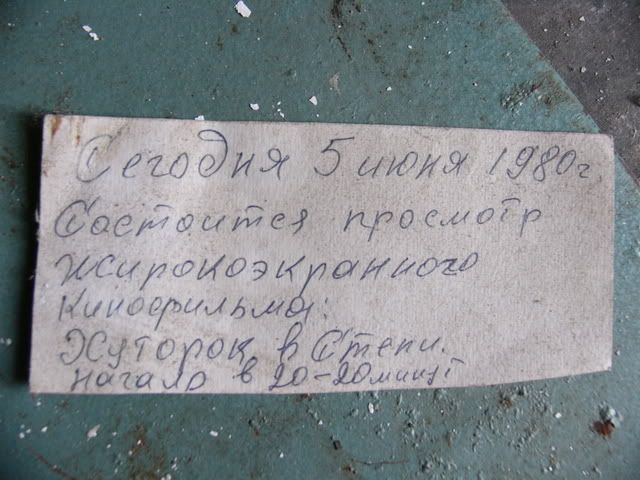 Сегодня 5 июня 1980г.
Состоится просмотр
широкоэкранного
кинофильма:
Хуторок в Степи.
начало в 20-20 минут